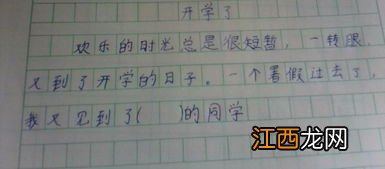 开学了
欢乐的时光总是很短暂，一转眼，
又到了开学的日子。一个暑假过去了，
我又见到了(    )的同学
江西龙网